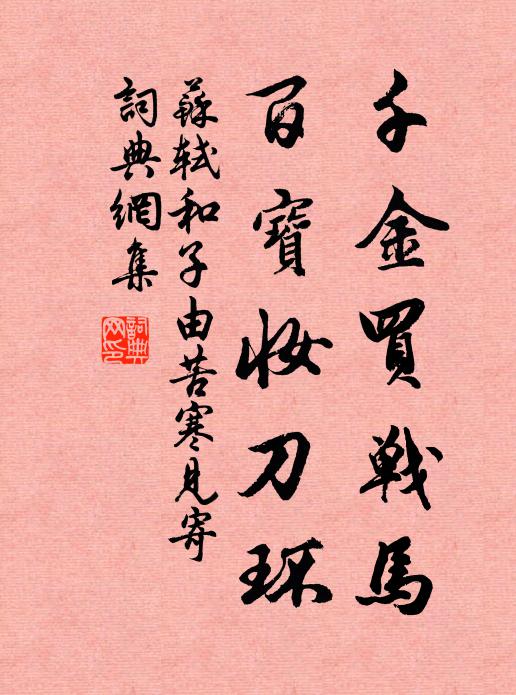 千金買戦馬
百寶妝刀環
蘇軾和子由苦寒見寄
詞典網集
詞典網印